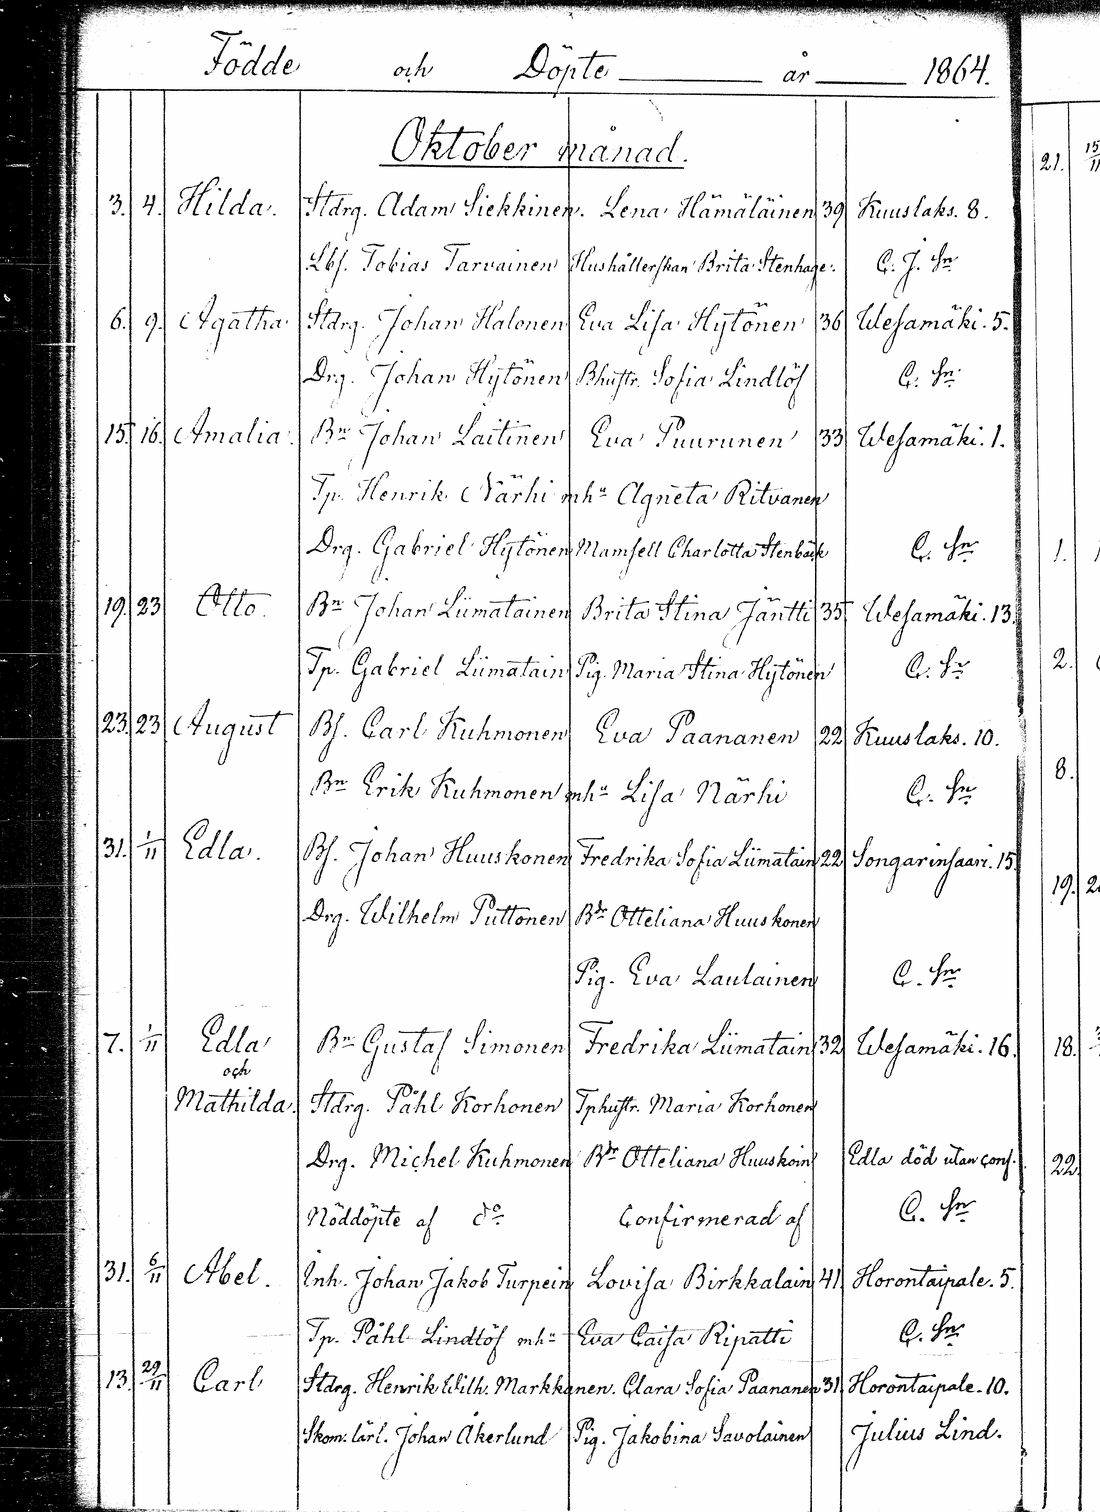 Födde och Döpte år 1864.
Oktober månad.
21. 15/11
3. 4. Hilda. Stdrg. Adam Siekkinen. Lena Hämäläinen 39 Kuuslaks. 8.
Lbf. Tobias Tarvainen Hushållerskan Brita Stenhage. C. J. Sn
6. 9. Agatha Stdrg. Johan Halonen Eva Lisa Hytönen 36 Wesamäki. 5.
Drg. Johan Hytönen Bhustr. Sofia Lindlöf C. Sn
15. 16. Amalia. Bn Johan Laitinen Eva Puurunen 33 Wesamäki. 1.
Tp. Henrik Närhi mhu Agneta Ritvanen
Drg. Gabriel Hytönen Mamsell Charlotta Stenbäck C. Sn 1.
19. 23 Otto. Bn Johan Liimatainen Brita Stina Jäntti 35 Wesamäki. 13.
Tp. Gabriel Liimatain Pig. Maria Stina Hytönen C. Sn 2.
23. 23 August Bs. Carl Kuhmonen Eva Paananen 22 Kuuslaks. 10.
Bn Erik Kuhmonen mhu Lisa Närhi C. Sn 8.
31. 1/11 Edla. Bs. Johan Huuskonen Fredrika Sofia Liimatain 22 Songarinsaari. 15
19.
Drg. Wilhelm Puttonen Bdr Otteliana Huuskonen
Pig. Eva Laulainen C. Sn
7. 1/11 Edla Bn Gustaf Simonen Fredrika Liimatain 32 Wesamäki. 16. 18.
och
Mathilda. Stdrg. Påhl Korhonen Tphustr. Maria Korhonen
Drg. Michel Kuhmonen Bdr Otteliana Huuskoin Edla död utan conf. 22.
Nöddöpte af do Confirmerad af C. Sn
31. 6/11 Abel. Inh. Johan Jakob Turpein Lovisa Birkkalain 41 Horontaipale. 5.
Tp. Påhl Lindlöf mhu Eva Caisa Ripatti C. Sn
13. 29/11 Carl Stdrg. Henrik Wilh. Markkanen. Clara Sofia Paananen 31. Horontaipale. 10.
Skom. lärl. Johan Åkerlund Pig. Jakobina Savolainen Julius Lind.